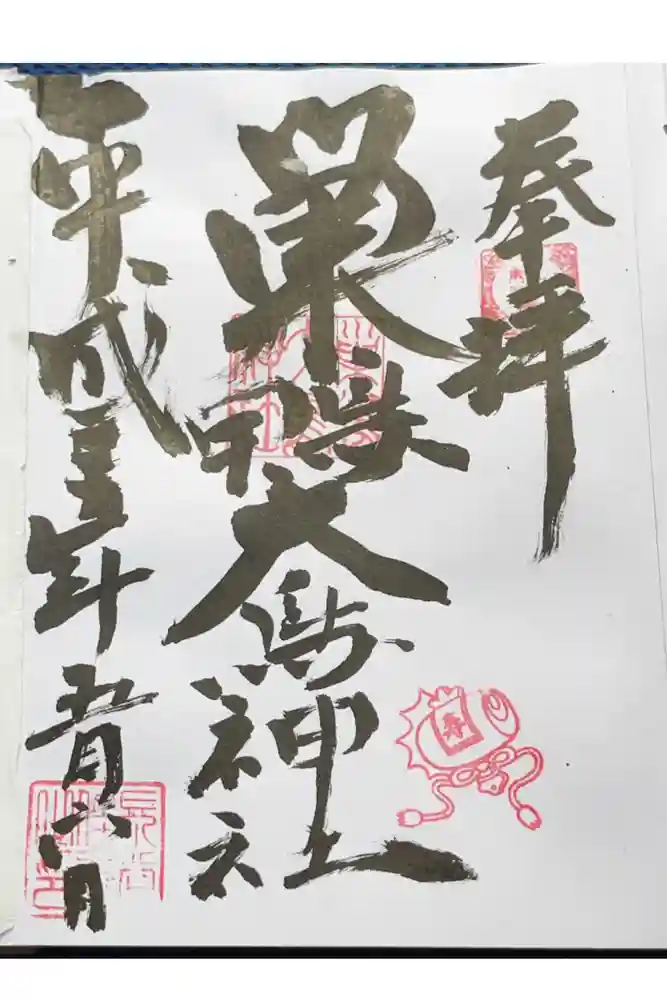 奉拝
巣鴨大鳥神社
平成年五月六日